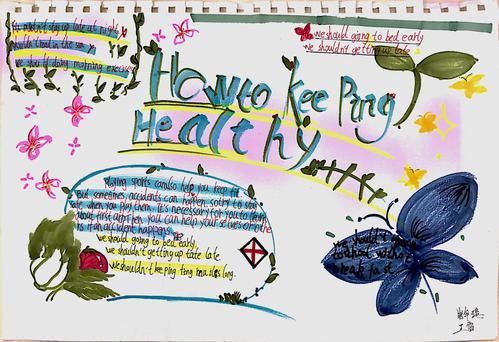 We mustn't stay up late at night
shouldn't read in the sun
we should doing morning exercises
we should going to bed early
we shouldn't getting up late
How to Kee Ping
Healthy
Playing sports can also help you keep fit
But sometimes accidents can happen. so try to stay
safe when you play them. It's necessary for you to learn
about first aid. Then you can help yourselves or others
an accident happens
we should going to bed early
we shouldn't getting up late late
we shouldn't keeping long nails long.
we shouldn't
to school without
breakfast.